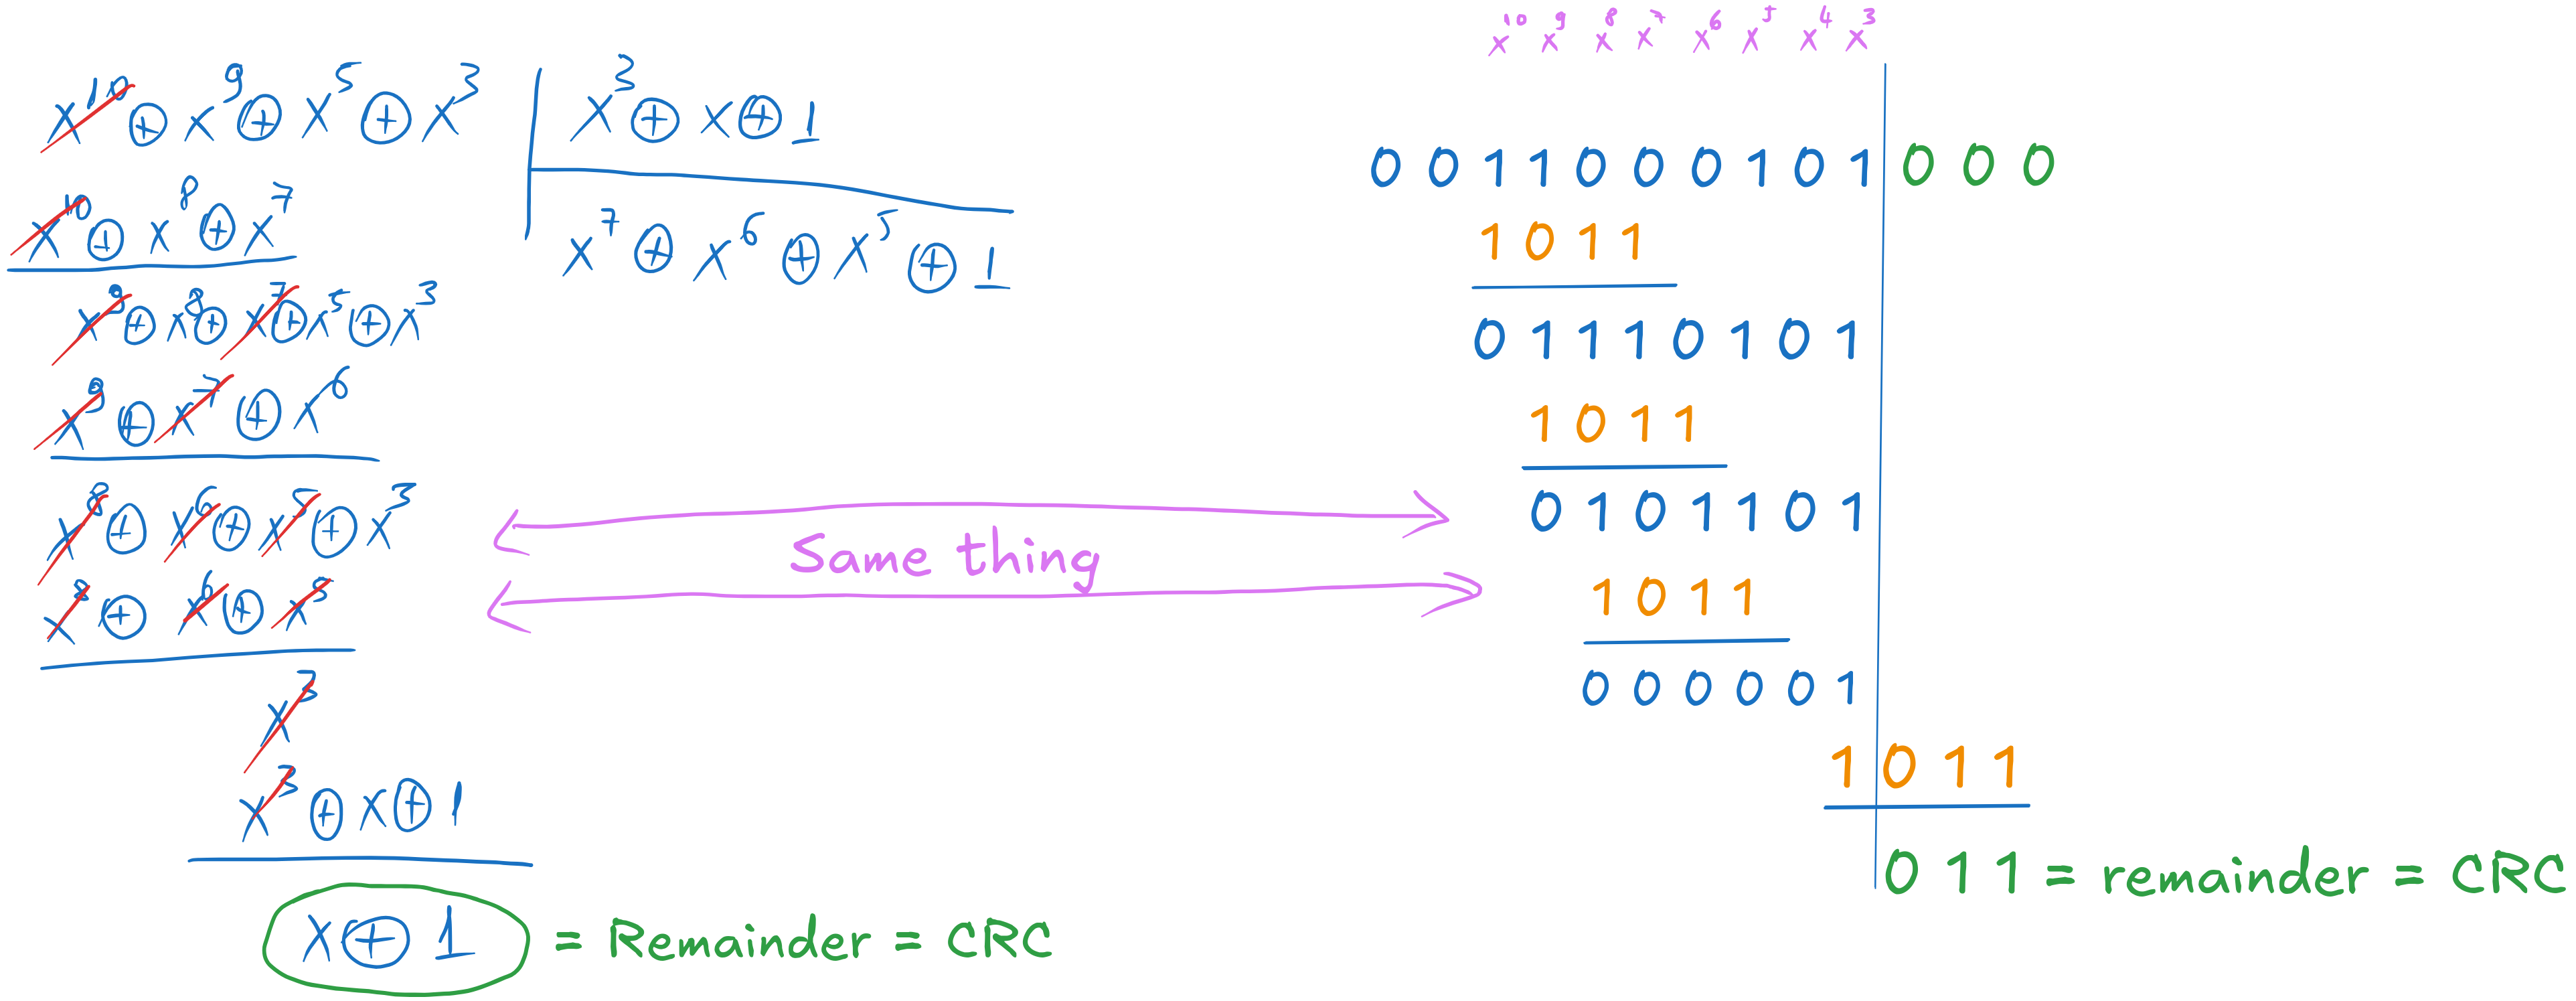 x¹⁰ ⊕ x⁹ ⊕ x⁵ ⊕ x³ | x³ ⊕ x ⊕ 1
x¹⁰ ⊕ x⁸ ⊕ x⁷
x⁷ ⊕ x⁶ ⊕ x⁵ ⊕ 1
x⁹ ⊕ x⁸ ⊕ x⁷ ⊕ x⁵ ⊕ x³
x⁹ ⊕ x⁷ ⊕ x⁶
x⁸ ⊕ x⁶ ⊕ x⁵ ⊕ x³
x⁸ ⊕ x⁶ ⊕ x⁵
x³
x³ ⊕ x ⊕ 1
x ⊕ 1 = Remainder = CRC
Same thing
x¹⁰ x⁹ x⁸ x⁷ x⁶ x⁵ x⁴ x³
0 0 1 1 0 0 0 1 0 1 | 0 0 0
1 0 1 1
0 1 1 1 0 1 0 1
1 0 1 1
0 1 0 1 1 0 1
1 0 1 1
0 0 0 0 0 1
1 0 1 1
0 1 1 = remainder = CRC